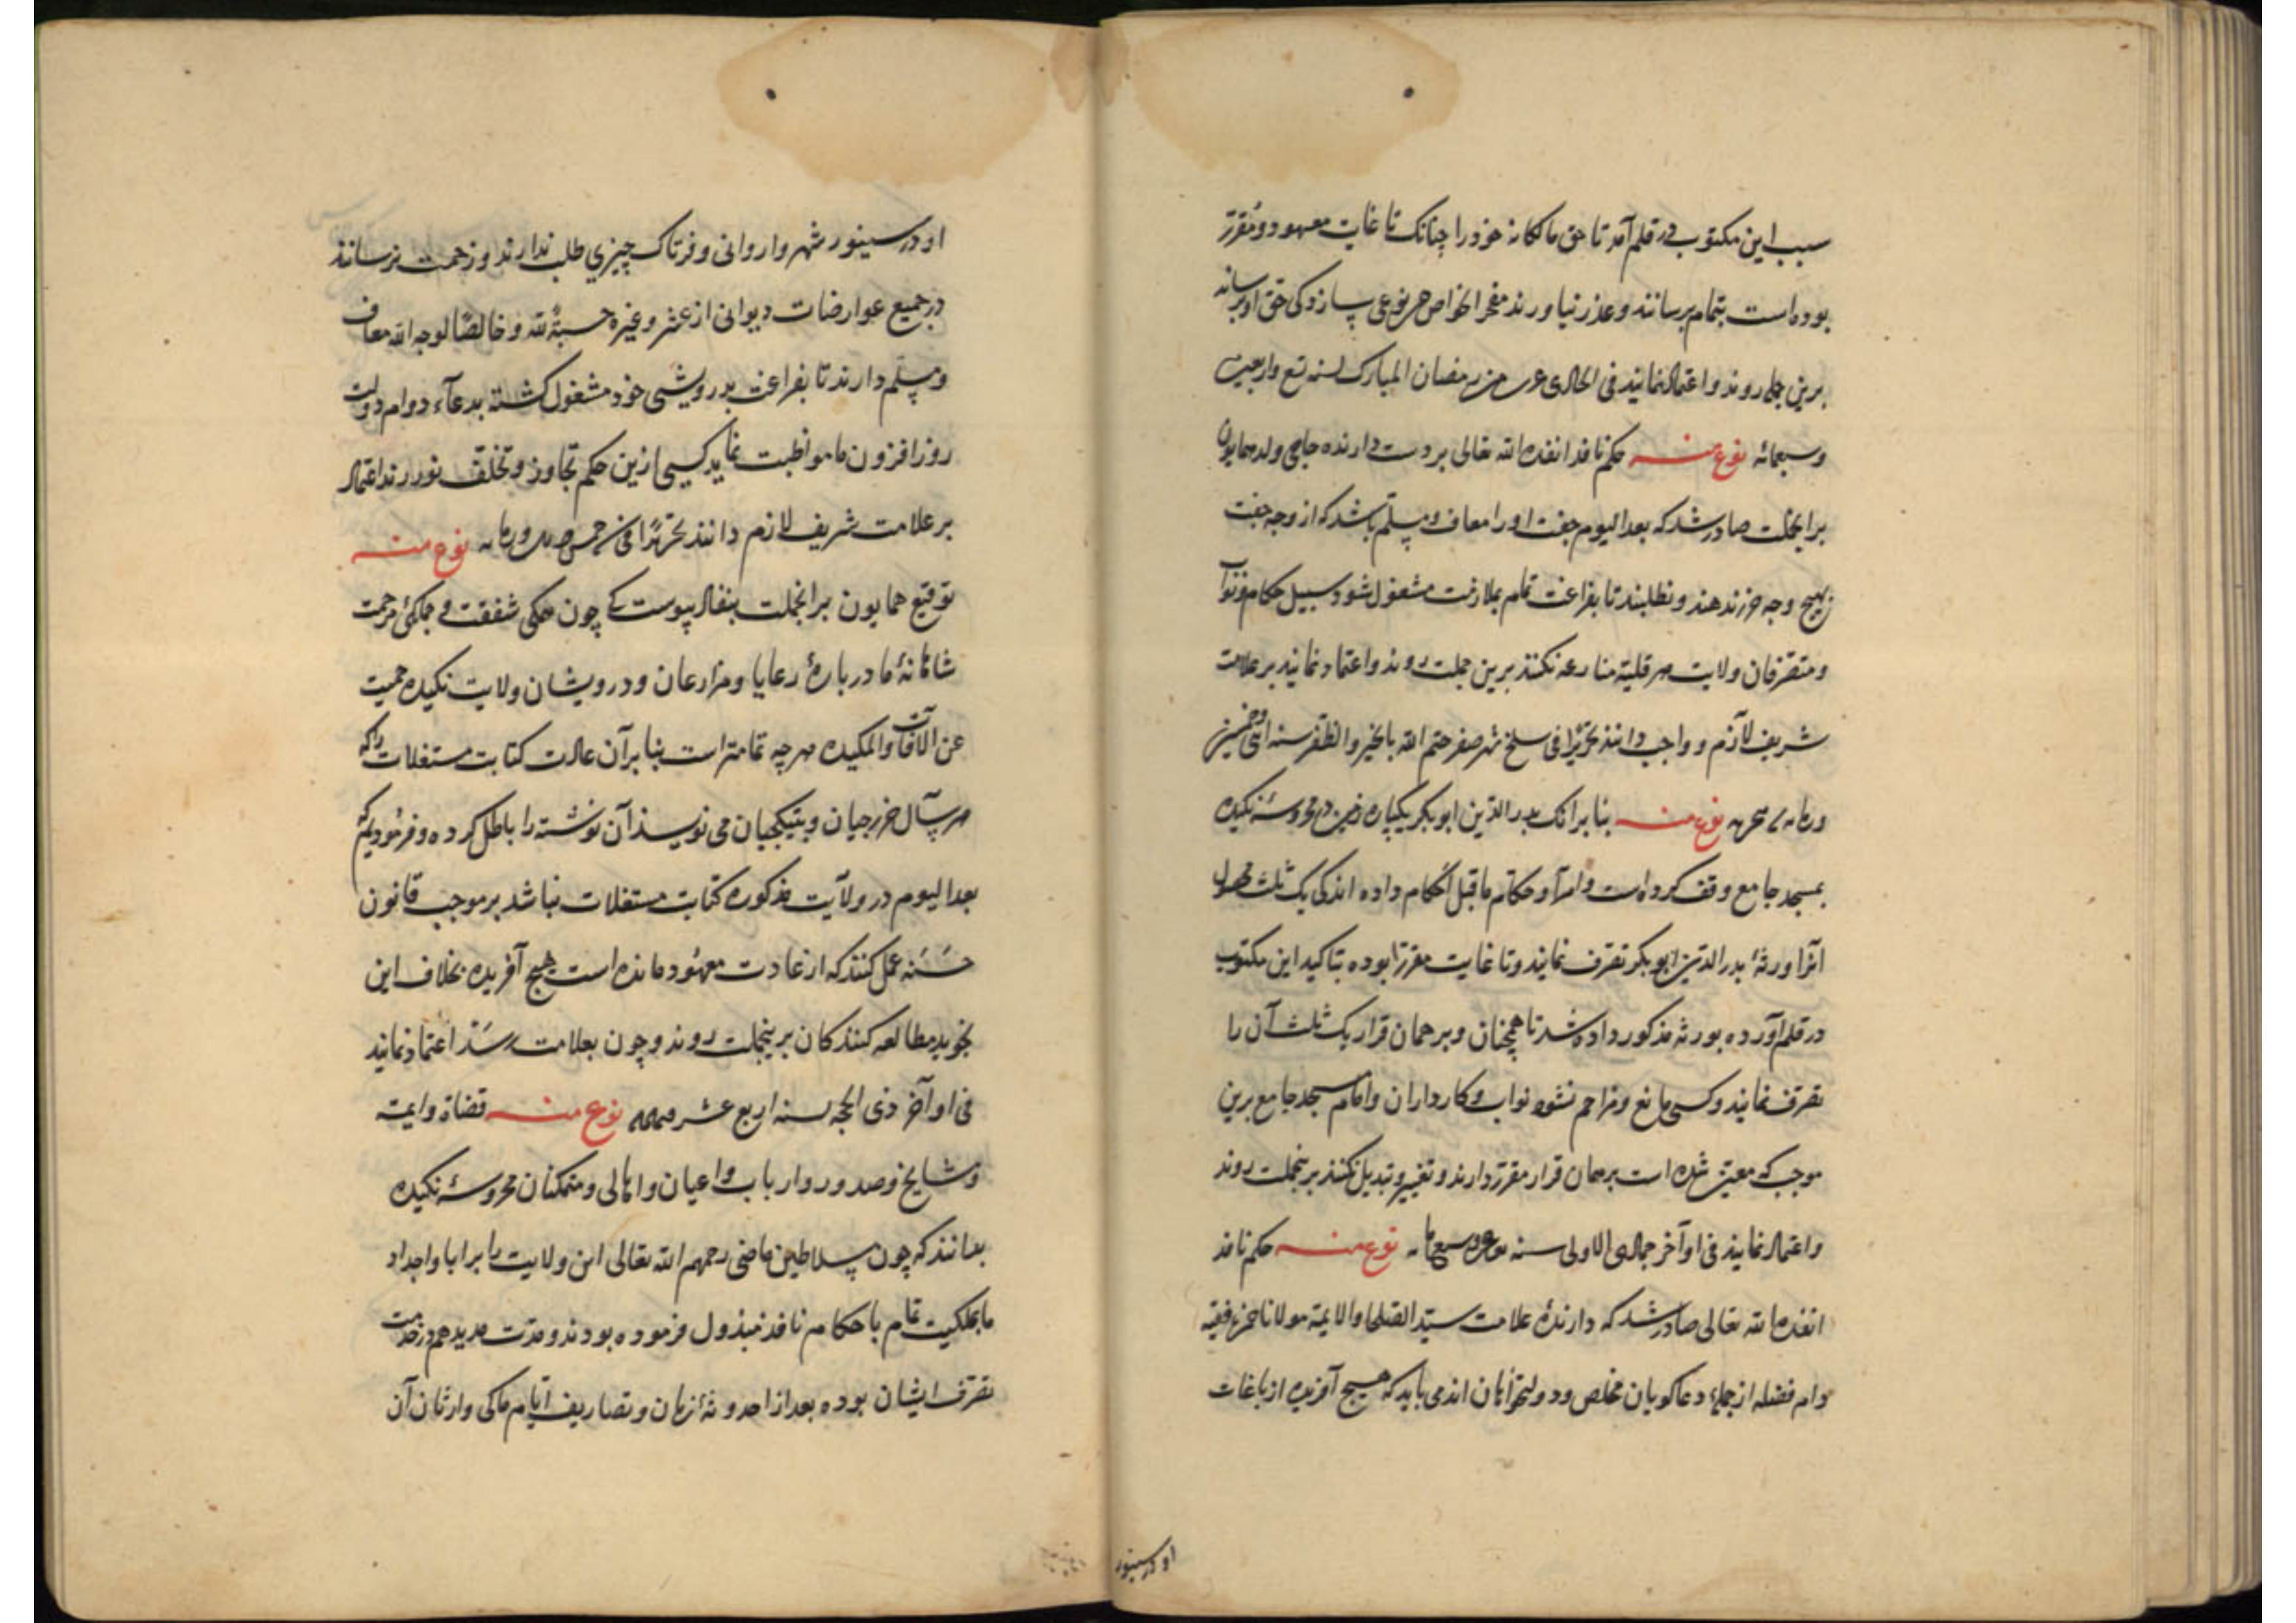 سبب این مکتوب در قلم آمد تا حق مالکانه خود را چنانک تا غایت معهود و مقرر
بوده است بتمام برسانند و عذر نیاورند مفخر الخواص
برین جمله روند و اعتماد نمایند فی الحادی من رمضان المبارک لسنه تسع واربعین
وسبعمائه نوع منه حکم نافذ انفذه الله تعالی بر دست دارنده حاجی ولد همایون
برانجملت صادر شد که بعد الیوم جفت اورا معاف و مسلم باشد که از وجه جفت
هیچ وجه ندهند و نطلبند تا بفراغت تمام بملازمت مشغول شود سبیل حکام و نواب
و متصرفان ولایت منازعه نکنند برین جملت روند و اعتماد نمایند بر علامت
شریف لازم و واجب دانند تحریرا فی سلخ شهر صفر ختم الله بالخیر والظفر سنه اثنی وخمسین
نوع منه بنا برانک بدرالدین ابوبکر در محروسه نکیده
بمسجد جامع وقف کرده است و امرآ و حکام ماقبل احکام داده اند کی یک ثلث محصول
آنرا ورثهٔ بدرالدین ابوبکر تصرف نمایند و تا غایت مقرر بوده بتاکید این مکتوب
در قلم آورده بورثه مذکور داده شد تا همچنان و بر همان قرار یک ثلث آن را
تصرف نمایند و کسی مانع و مزاحم نشود نواب و کارداران و امام مسجد جامع برین
موجب که معین شده است بر همان قرار مقرر دارند و تغییر و تبدیل نکنند برینجملت روند
و اعتماد نمایند فی اوآخر جمادی الاولی سنه نوع منه حکم نافذ
انفذه الله تعالی صادر شد که دارندهٔ علامت سید الصلحا والایمة مولانا فقیه
دام فضله از جملهٔ دعاکویان مخلص و دولتخواهان اند می باید که هیچ آفریده از باغات
او در سینور
او در سینور شهر و اروانی و فرتاک چیزی طلب ندارند و زحمت نرسانند
در جمیع عوارضات دیوانی از عشر و غیره حسبةً لله و خالصًا لوجه الله معاف
و مسلم دارند تا بفراغت بدرویشی خود مشغول کشته بدعآء دوام دولت
روزافزون ما مواظبت نماید کسی ازین حکم تجاوز و تخلف نورزند اعتماد
بر علامت شریف لازم دانند تحریرًا فی نوع منه
توقیع همایون برانجملت بنفاذ پیوست که چون همکی شفقت و جملکی مرحمت
شاهانهٔ ما در بارهٔ رعایا و مزارعان و درویشان ولایت نکیده حمیت
عن الآفات والمکیده هرچه تمامتر است بنا برآن عادت کتابت مستغلات را که
هر سآل خرجیان و بتیکجیان می نویسند آن نوشته را باطل کرده و فرمودیم که
بعد الیوم در ولآیت مذکوره کتابت مستغلات نباشد بر موجب قانون
حَسَنه عمل کنند که از عادت معهود مانده است هیچ آفریده بخلاف این
نجوید مطالعه کنندکان برینجملت روند و چون بعلامت رسَد اعتماد نمایند
فی اوآخر ذی الحجه لسنه اربع عشر نوع منه قضاة و ایمه
و مشایخ و صدور و ارباب و اعیان و اهالی و متمکنان محروسهٔ نکیده
بدانند که چون سلاطین ماضی رحمهم الله تعالی این ولایت را برابا و اجداد
ما بملکیت تمام با حکام نافذ مبذول فرموده بودند و مدت مدید هم در خدمت
تصرف ایشان بوده بعد از احدوثهٔ زمان و تصاریف ایام ماکی وارثان آن